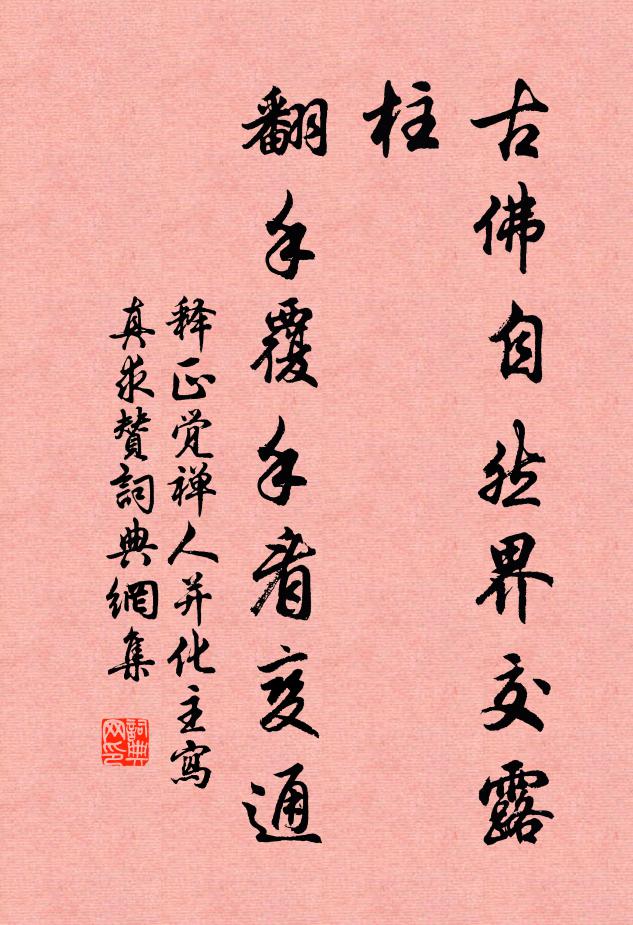 古佛自然界交露
柱
翻手覆手看变通
释正觉禅人并化主寫
真求赞詞典網集
詞典网印